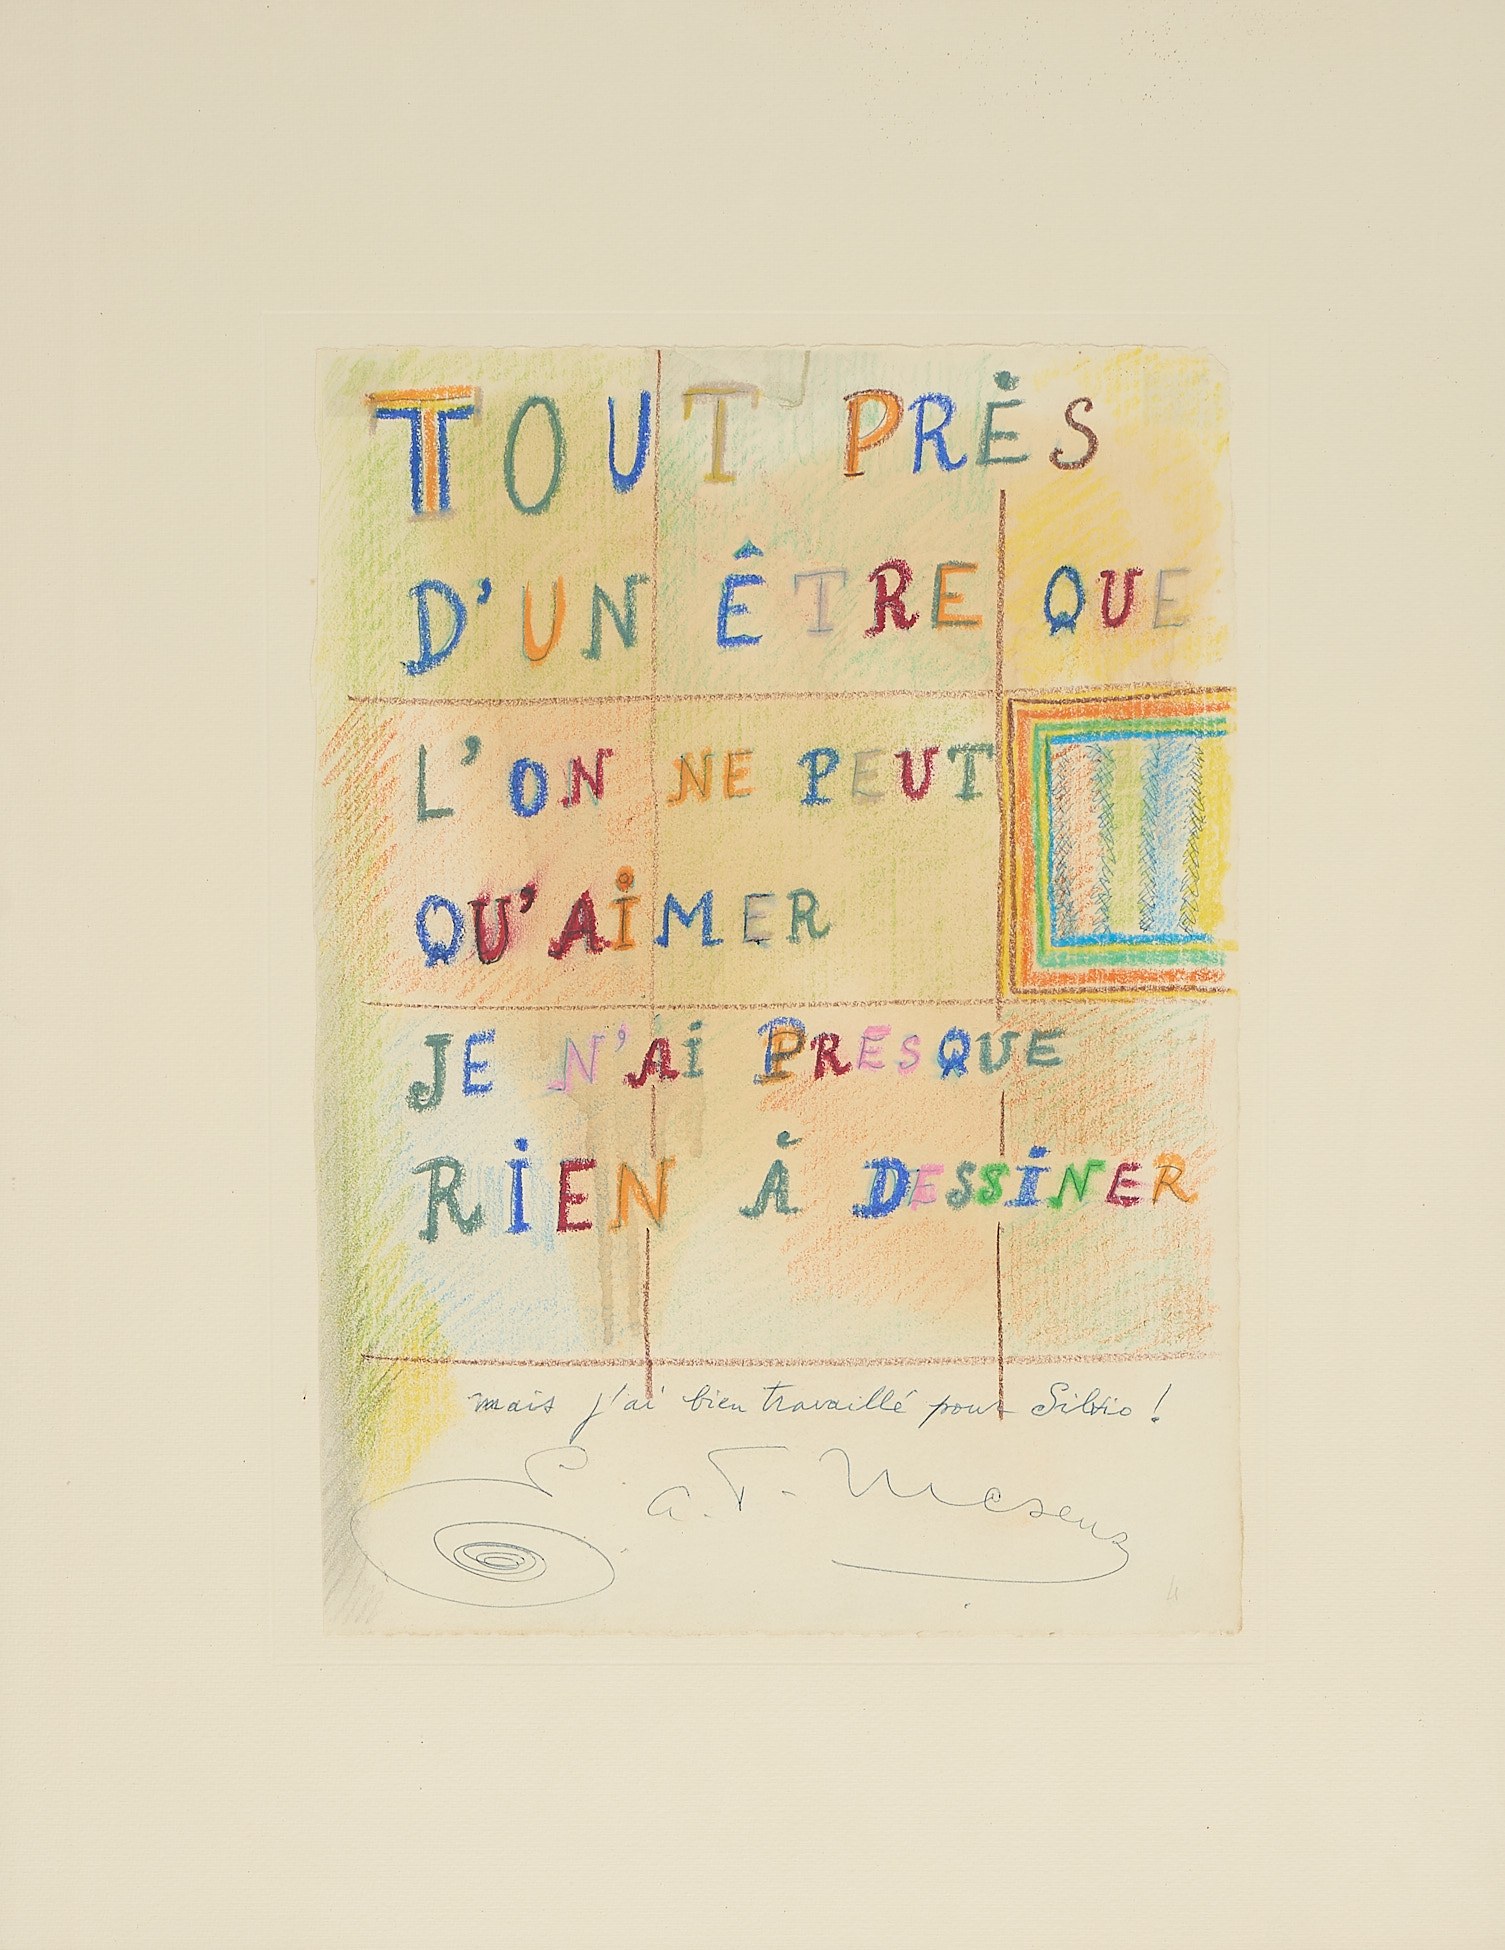 TOUT PRÈS
D'UN ÊTRE QUE
L'ON NE PEUT
QU'AIMER
JE N'AI PRESQUE
RIEN À DESSINER
mais j'ai bien travaillé pour Silvio !
E. L. T. Mesens